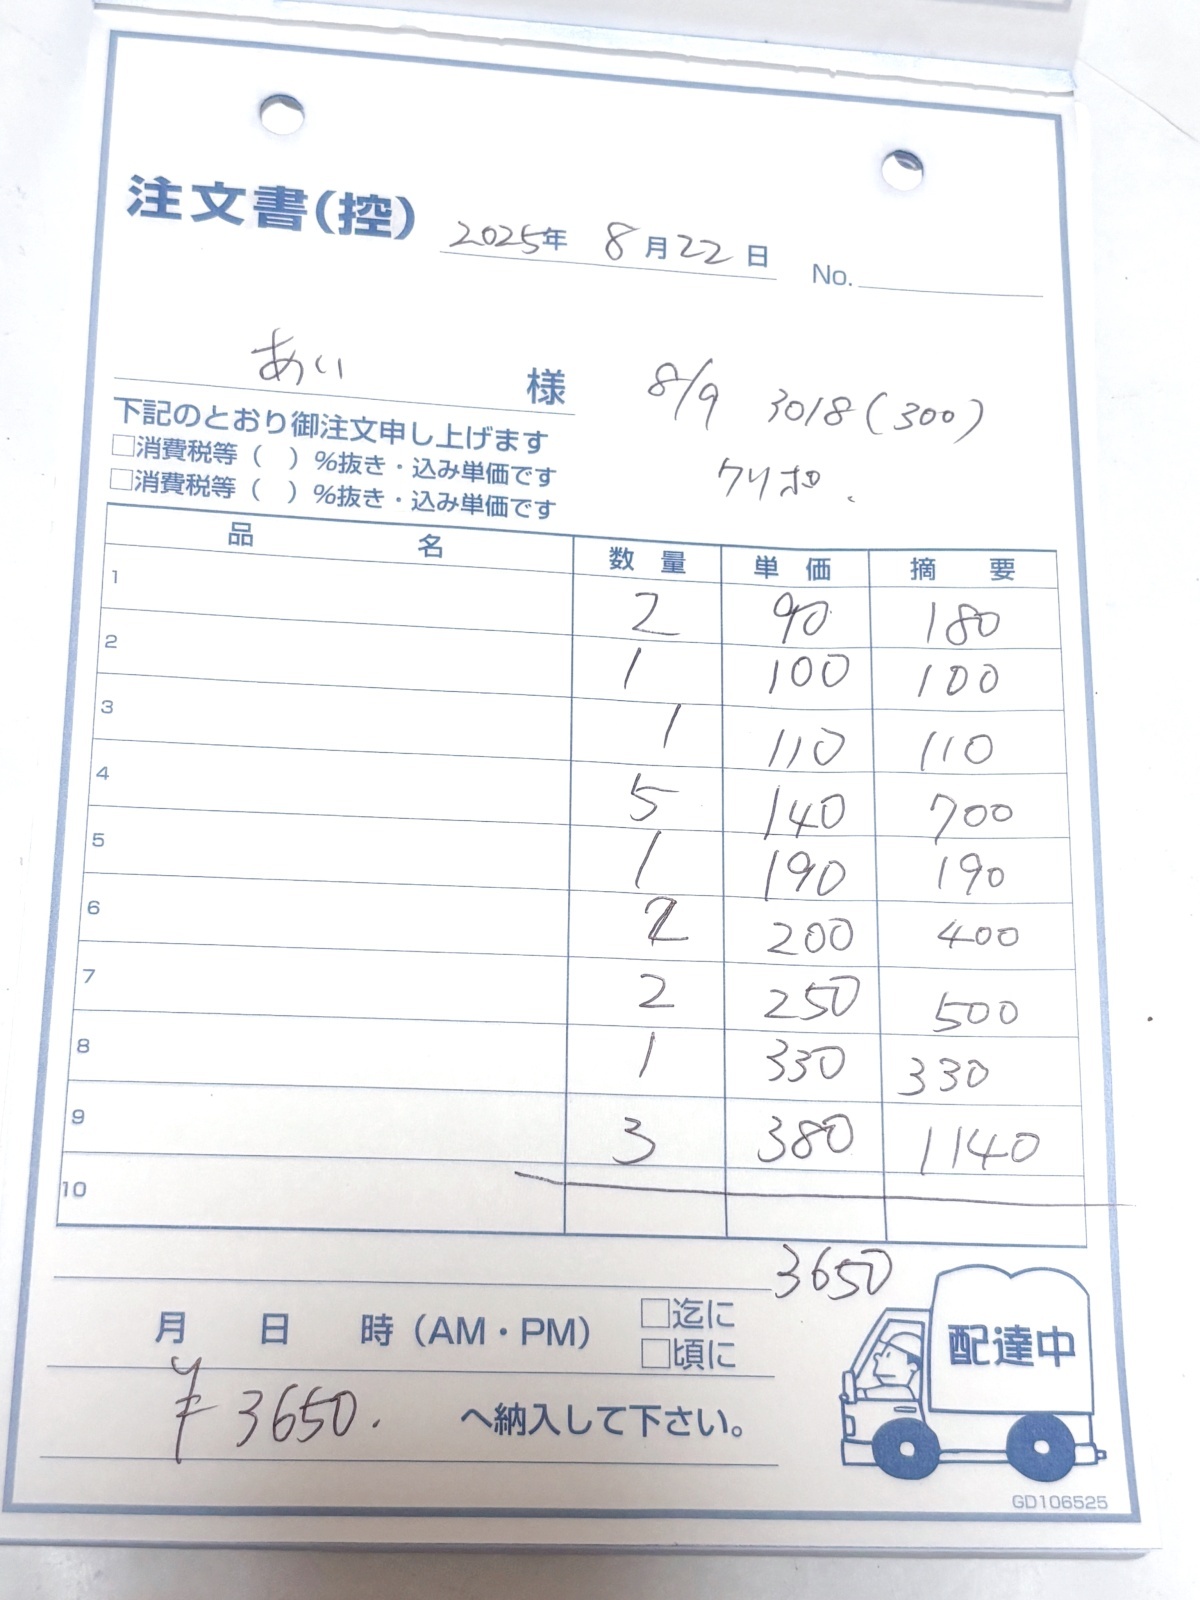 注文書(控) 2025年 8月22日 No.
あい 様 8/9 3018(300)
クリポ、
下記のとおり御注文申し上げます
□消費税等( )%抜き・込み単価です
□消費税等( )%抜き・込み単価です
品名 数量 単価 摘要
1 2 90 180
2 1 100 100
3 1 110 110
4 5 140 700
5 1 190 190
6 2 200 400
7 2 250 500
8 1 330 330
9 3 380 1140
10
3650
月 日 時(AM・PM) □迄に
□頃に
配達中
¥3650. へ納入して下さい。
GD106525